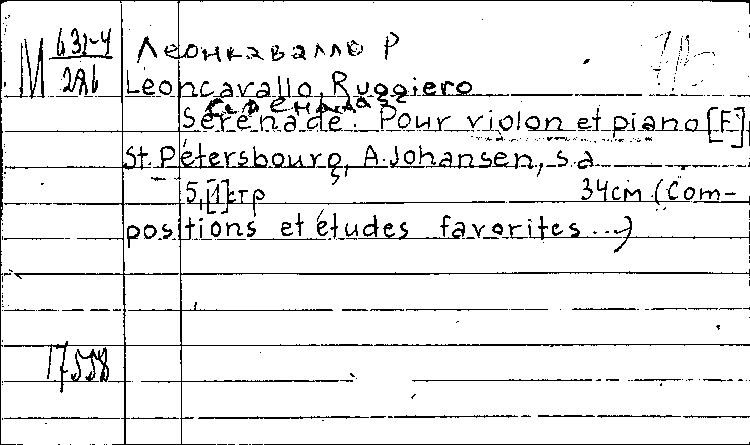 М 631-4
226
Леонкавалло Р
Leoncavallo, Ruggiero
Серенада
Sérénade. Pour violon et piano [F]
St. Pétersbourg, A. Johansen, s.a
5,[1] стр 34 см (Com-
positions et études favorites...)
17558